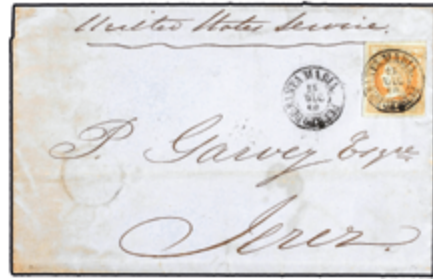 United States Service.
STA MARIA
P. Garvey Esqre
Jerez.